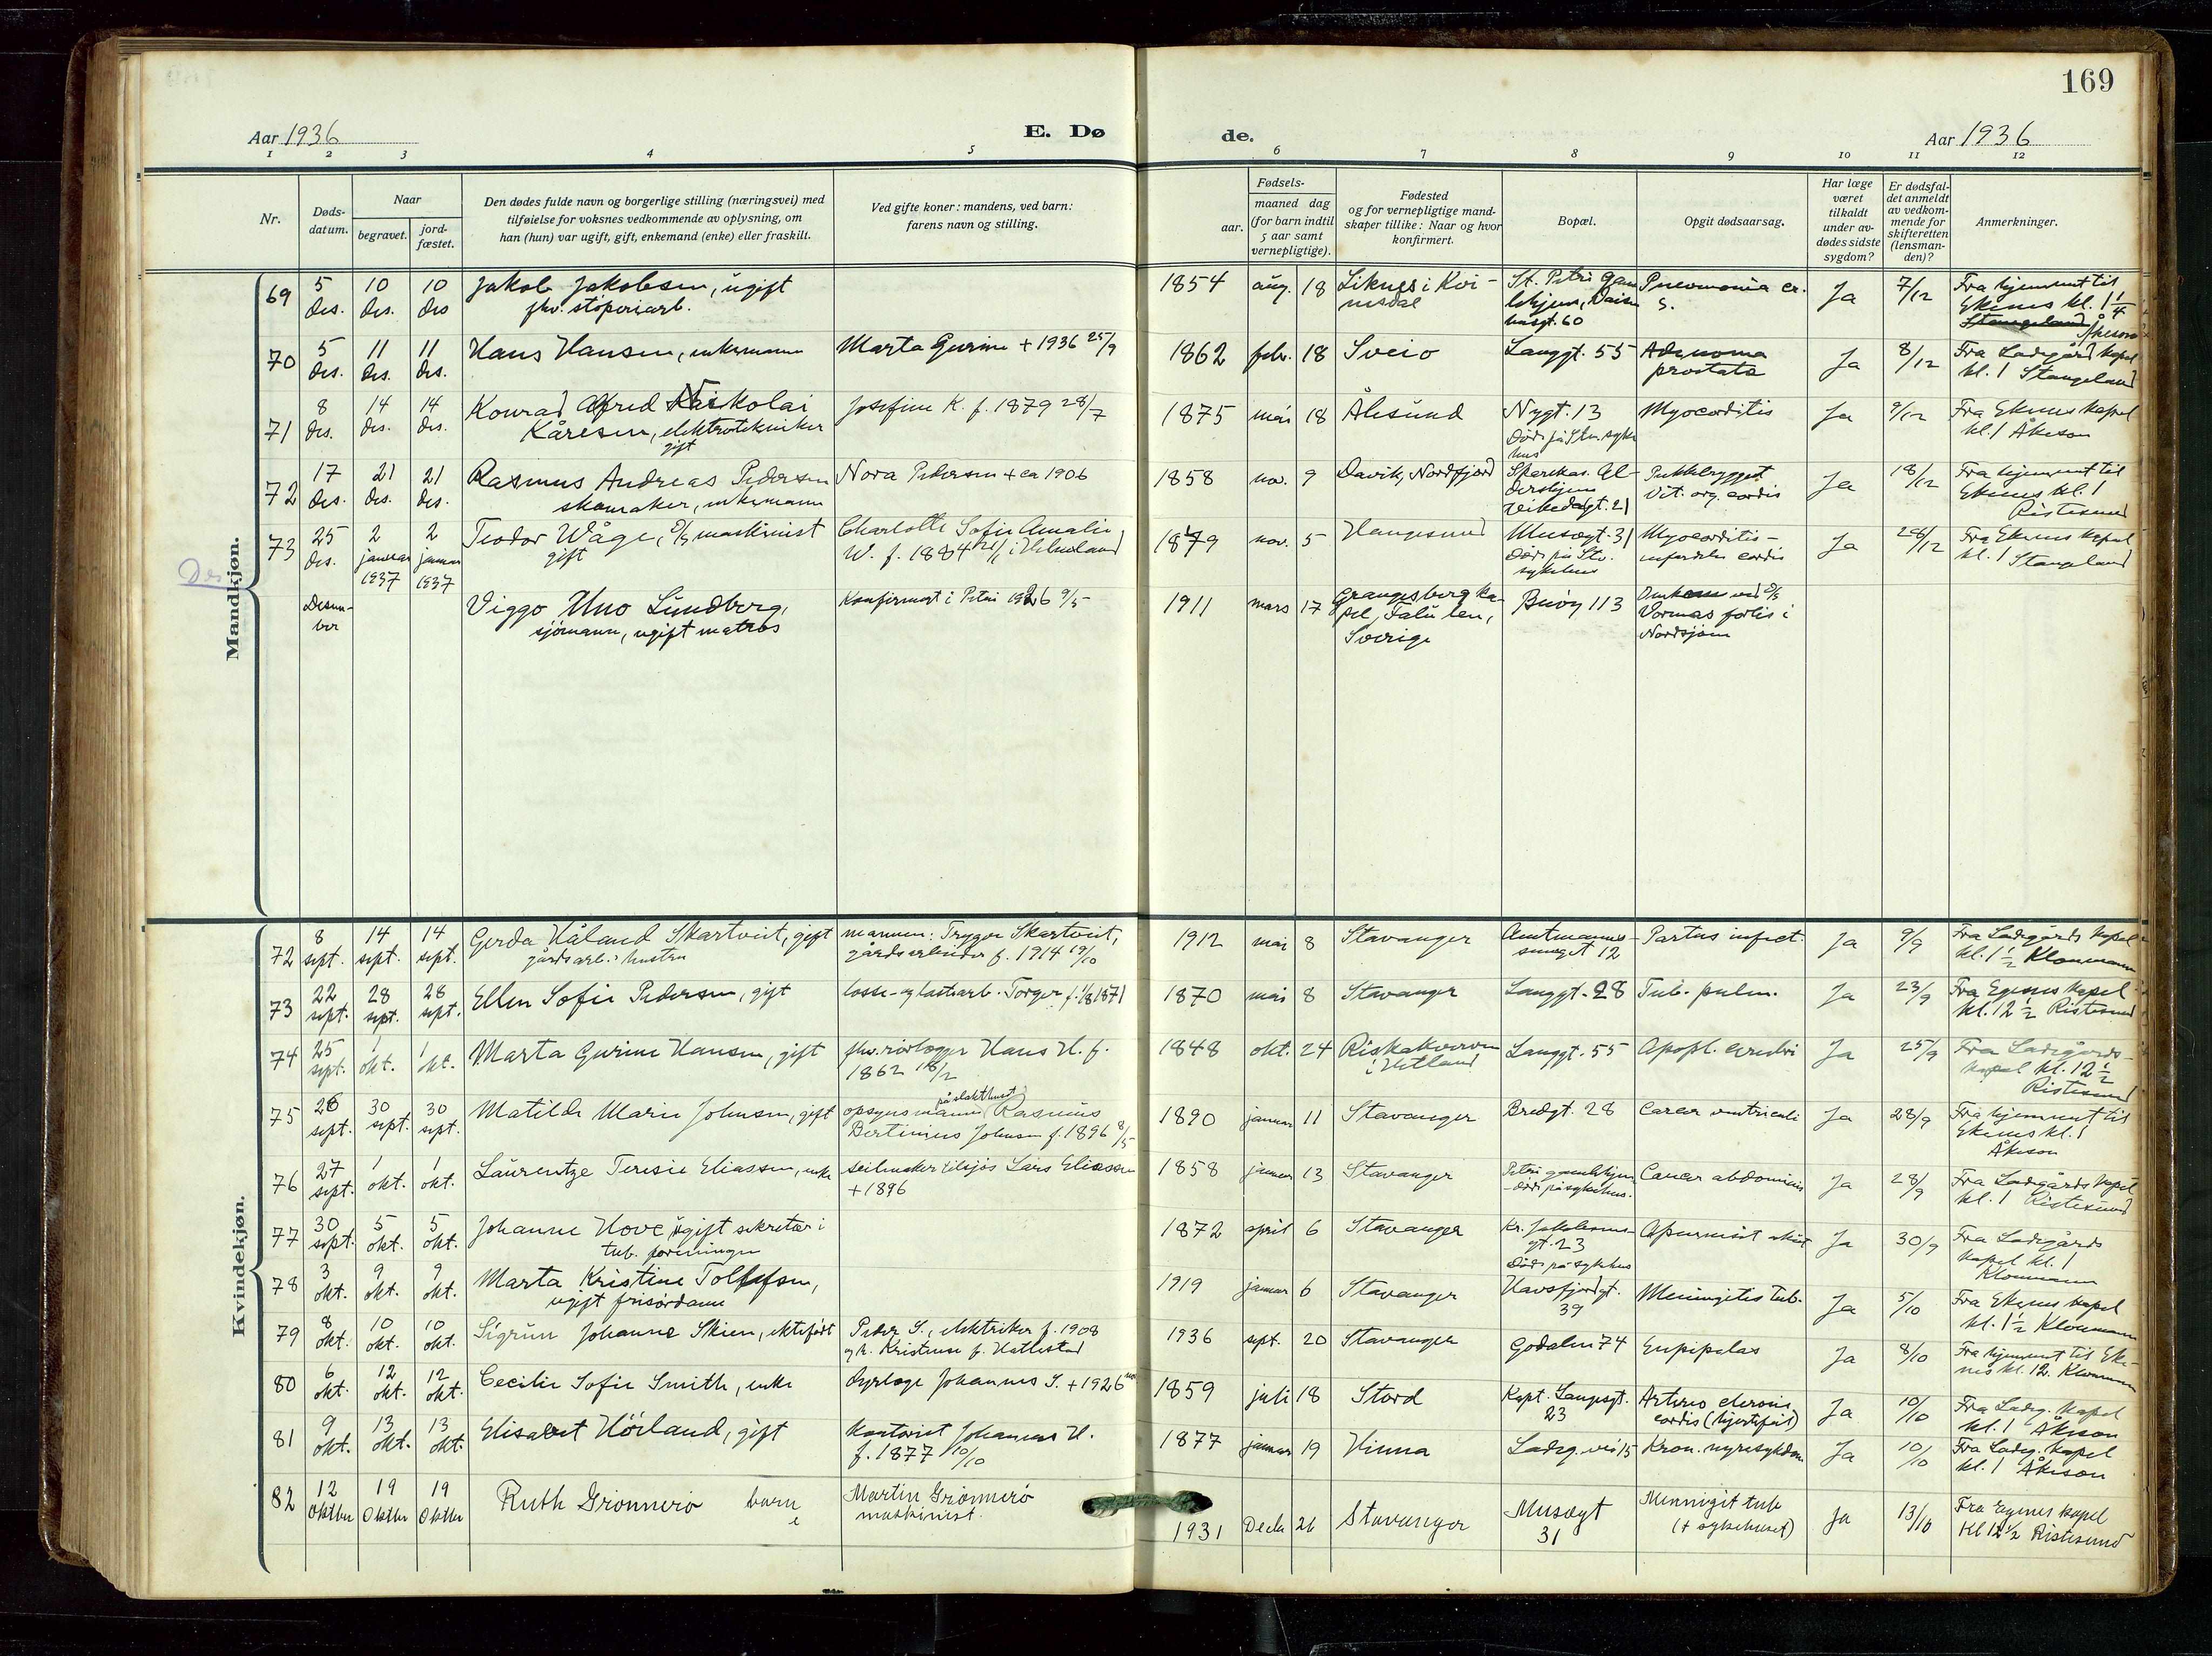 169
Aar 1936
E. Dø
de.
Aar 1936
1 2 3 4 5 6 7 8 9 10 11 12
Nr.
Døds-
datum.
Naar
begravet.
jord-
fæstet.
Den dødes fulde navn og borgerlige stilling (næringsvei) med
tilføielse for voksnes vedkommende av oplysning, om
han (hun) var ugift, gift, enkemand (enke) eller fraskilt.
Ved gifte koner: mandens, ved barn:
farens navn og stilling.
Fødsels-
aar.
maaned dag
(for barn indtil
5 aar samt
vernepligtige).
Fødested
og for vernepligtige mand-
skaper tillike: Naar og hvor
konfirmert.
Bopæl.
Opgit dødsaarsag.
Har læge
været
tilkaldt
under av-
dødes sidste
sygdom?
Er dødsfal-
det anmeldt
av vedkom-
mende for
skifteretten
(lensman-
den)?
Anmerkninger.
Mandkjøn.
69 5 des. 10 des. 10 des Jakob Jakobsen, ugift
fhv. støperiarb.
1854 aug. 18 Liknes i Kvi-
nesdal
St. Petri Gam
lehjem,
60
Pneumonia cr.
s.
Ja 7/12 Fra hjemmet til
Ekenes kl. 1 1/4
Stangeland Åkeson
70 5 des. 11 des. 11 des. Hans Hansen, enkemann
Marta Gurine + 1936 25/9
1862 febr. 18 Sveio Langgt. 55 Adenoma
prostata
Ja 8/12 Fra Ladegård kapel
kl. 1 Stangeland
71 8 des. 14 des. 14 des. Konrad Alfred Nikolai
Kåresen, elektrotekniker
gift
Josefine K. f. 1879 28/7
1875 mai 18 Ålesund Nygt. 13
Død på Stv. syke
hus
Myocarditis Ja 9/12 Fra Ekenes kapel
kl. 1 Åkeson
72 17 des. 21 des. 21 des. Rasmus Andreas Pedersen
skomaker, enkemann
Nora Pedersen + ca 1906
1858 nov. 9 Davik, Nordfjord Sparekas. Al-
dershjem
Vikedalgt. 21
Vit. org. cordis
Ja 18/12 Fra hjemmet til
Ekenes kl. 1
Ristesund
73 25 des. 2 januar 1937 2 januar 1937 Teodor Wåge, D/S maskinist
gift
Charlotte Sofie Amalie
W. f. 1884 21/1 i Helmeland
1879 nov. 5 Haugesund Musegt. 31
Død på Stv.
sykehus
Myocarditis-
cordis
Ja 28/12 Fra Ekenes kapel
kl. 1 Stangeland
Desem-
ber
Viggo Uno Lundberg,
sjømann, ugift matros
Konfirmert i Petri 1926 9/5
1911 mars 17 Grangesberg ka-
pel, Falu len,
Sverige
Buøy 113
Omkom ved D/S
Vormas forlis i
Nordsjøen
Kvindekjøn.
72 8 sept. 14 sept. 14 sept. Gerda Håland Skartveit, gift
gårdsarb.s hustru
mannen: Trygve Skartveit,
gårdsarbeider f. 1914 19/10
1912 mai 8 Stavanger Amtmannes-
smuget 12
Partus infect. Ja 9/9 Fra Ladegårds kapel
kl. 1 1/2 Kloumann
73 22 sept. 28 sept. 28 sept. Ellen Sofie Pedersen, gift
losse- og lastearb. Torger f. 1/8 1871
1870 mai 8 Stavanger Langgt. 28 Tub. pulm. Ja 23/9 Fra Egenes kapel
kl. 12 1/2 Ristesund
74 25 sept. 1 okt. 1 okt. Marta Gurine Hansen, gift
fhv. rørlegger Hans H. f.
1862 18/2
1848 okt. 24 Riskakverven
i Hetland
Langgt. 55 Apopl. cerebri Ja 25/9 Fra Ladegårds-
kapel kl. 12 1/2
Ristesund
75 26 sept. 30 sept. 30 sept. Matilde Marie Johnsen, gift
på slakthuset
opsynsmann Rasmus
Bertinius Johnsen f. 1896 8/5
1890 januar 11 Stavanger Bredgt. 28 Cancer ventriculi Ja 28/9 Fra hjemmet til
Ekenes kl. 1
Åkeson
76 27 sept. 1 okt. 1 okt. Laurentze Teresie Eliassen, enke
seilmaker tilsjøs Lars Eliassen
+ 1896
1858 januar 13 Stavanger Petri gamlehjem
- død på sykehus.
Cancer abdominis Ja 28/9 Fra Ladgårds kapel
kl. 1 Ristesund
77 30 sept. 5 okt. 5 okt. Johanne Hove ugift sekretær i
tub. foreningen
1872 april 6 Stavanger Kr. Jakobsens-
gt. 23
Død på sykehus
Ja 30/9 Fra Ladgårds
kapel kl. 1
Kloumann
78 3 okt. 9 okt. 9 okt. Marta Kristine Tollefsen,
ugift frisørdame
1919 januar 6 Stavanger Havsfjordgt.
39
Meningitis tub. Ja 5/10 Fra Ekenes kapel
kl. 1 1/2 Kloumann
79 8 okt. 10 okt. 10 okt. Sigrun Johanne Skien, ektefødt
Peder S., elektriker f. 1908
og h. Kristense f. Hatlestad
1936 sept. 20 Stavanger Godalen 74 Erysipelas Ja 8/10 Fra hjemmet til Eke-
nes kl. 12. Kloumann
80 6 okt. 12 okt. 12 okt. Cecilie Sofie Smith, enke
dyrlege Johannes S. + 1926
1859 juli 18 Stord Kapt. Langesgt.
23
Arterio sclerosis
cordis (hjertefeil)
Ja 10/10 Fra Ladeg. kapel
kl. 1 Åkeson
81 9 okt. 13 okt. 13 okt. Elisabet Høiland, gift
kontorist Johannes H.
f. 1877 10/10
1877 januar 19 Hinna Ladeg. vei 15 Kron. nyresykdom Ja 10/10 Fra Ladeg. kapel
kl. 1 Åkeson
82 12 Oktber 19 Oktber 19 Oktber Ruth Grønnerø barn
e
Martin Grønnerø
maskinist.
1931 Decbr 26 Stavanger Musegt
31
Mennigit tub
(+ sykehuset)
Ja 13/10 Fra Egenes kapel
kl 12 1/2 Ristesund